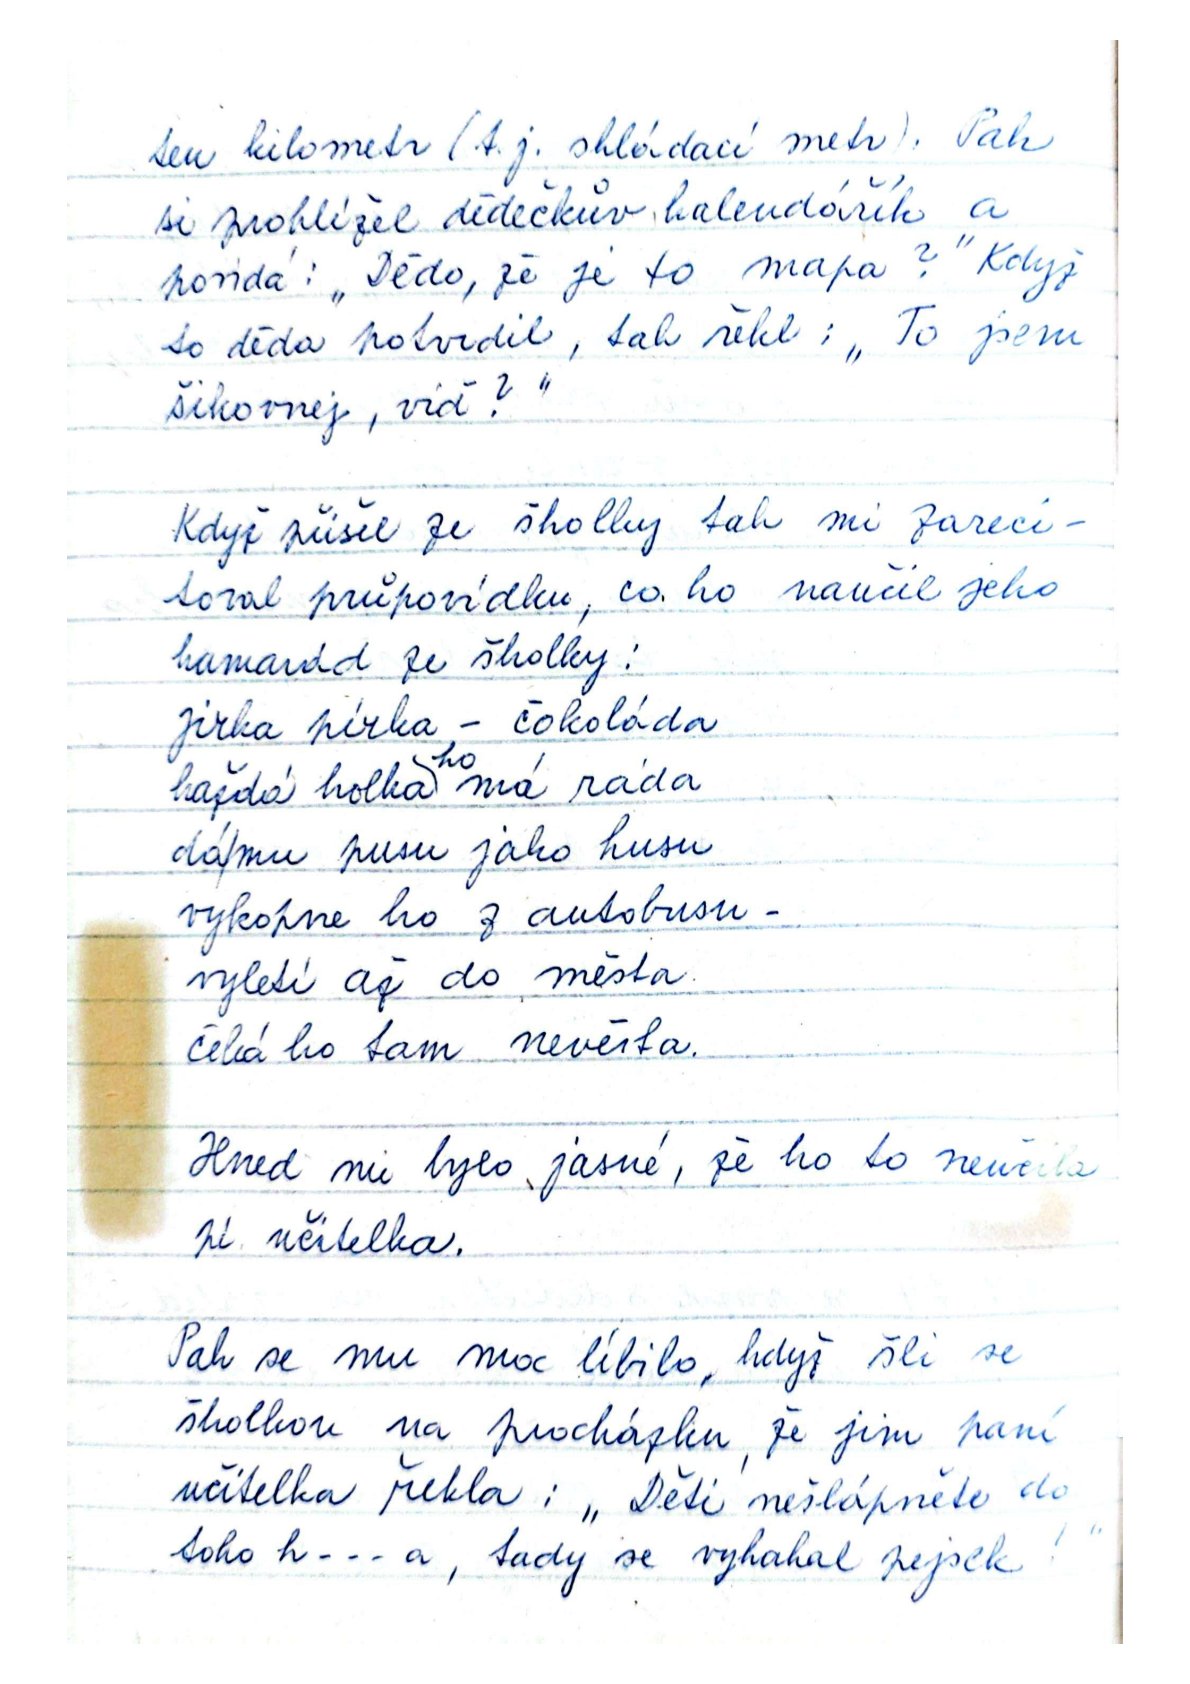 ten kilometr (t.j. skládací metr). Pak
si prohlížel dědečkův kalendářík a
povídá: „Dědo, že je to mapa?" Když
to děda potvrdil, tak řekl: „To jsem
šikovnej, viď?"
Když přišel ze školky tak mi zareci-
toval průpovídku, co ho naučil jeho
kamarád ze školky:
Jirka pírka - čokoláda
každá holka ho má ráda
dá mu pusu jako husu
vykopne ho z autobusu -
vyletí až do města
čeká ho tam nevěsta.
Hned mi bylo jasné, že ho to neučila
pí. učitelka.
Pak se mu moc líbilo, když šli se
školkou na procházku, že jim paní
učitelka řekla: „Děti nešlápněte do
toho h---a, tady se vykakal pejsek!"